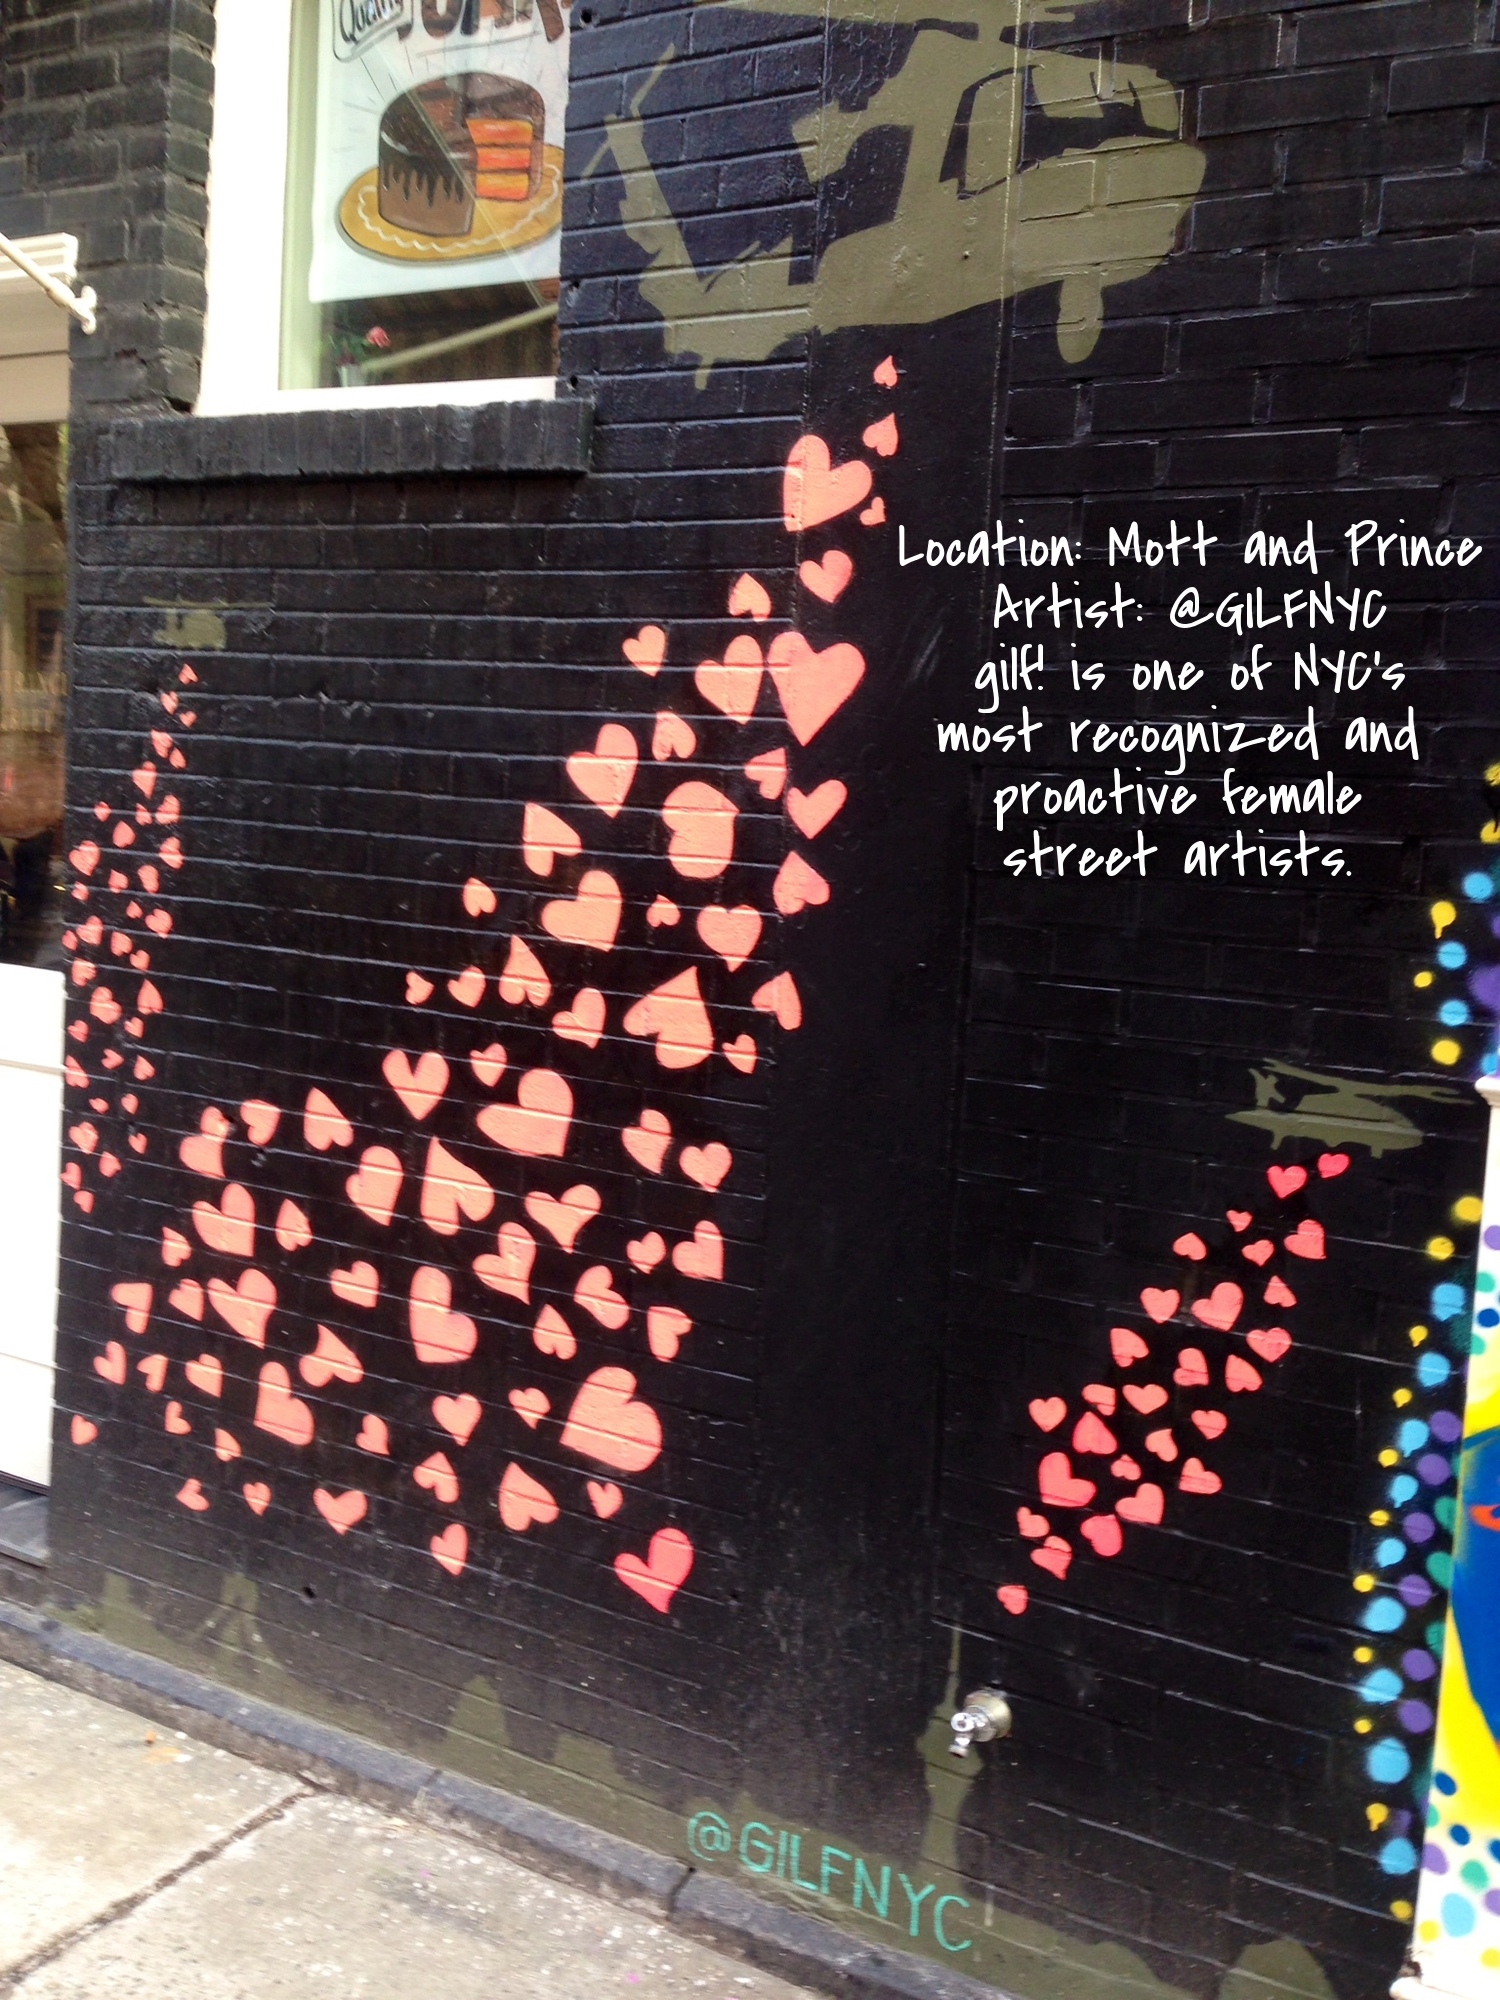 Quality
Location: Mott and Prince
Artist: @GILFNYC
gilf! is one of NYC's
most recognized and
proactive female
street artists.
@GILFNYC